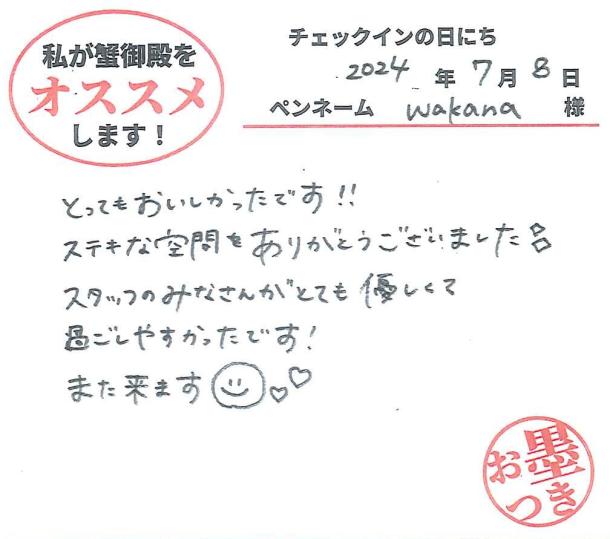 私が蟹御殿を
オススメ
します！
チェックインの日にち
2024 年 7月 8 日
ペンネーム wakana 様
とってもおいしかったです!!
ステキな空間をありがとうございました
スタッフのみなさんがとても優しくて
過ごしやすかったです!
また来ます
お墨
つき